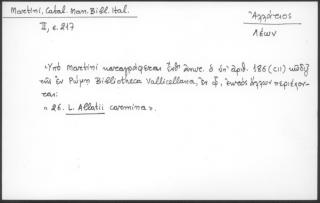 Martini, Catal. Man. Bibl. Ital.
II, c. 217
Ἀλλάτιος
Λέων
Ὑπὸ Martini καταγράφεται ὁ ὑπ' ἀριθ. 186 (CII) κῶδιξ
τῆς ἐν Ρώμῃ Bibliotheca Vallicellana, ἐν ᾧ, ἐκτὸς ἄλλων περιέχον-
ται:
« 26. L. Allatii carmina ».